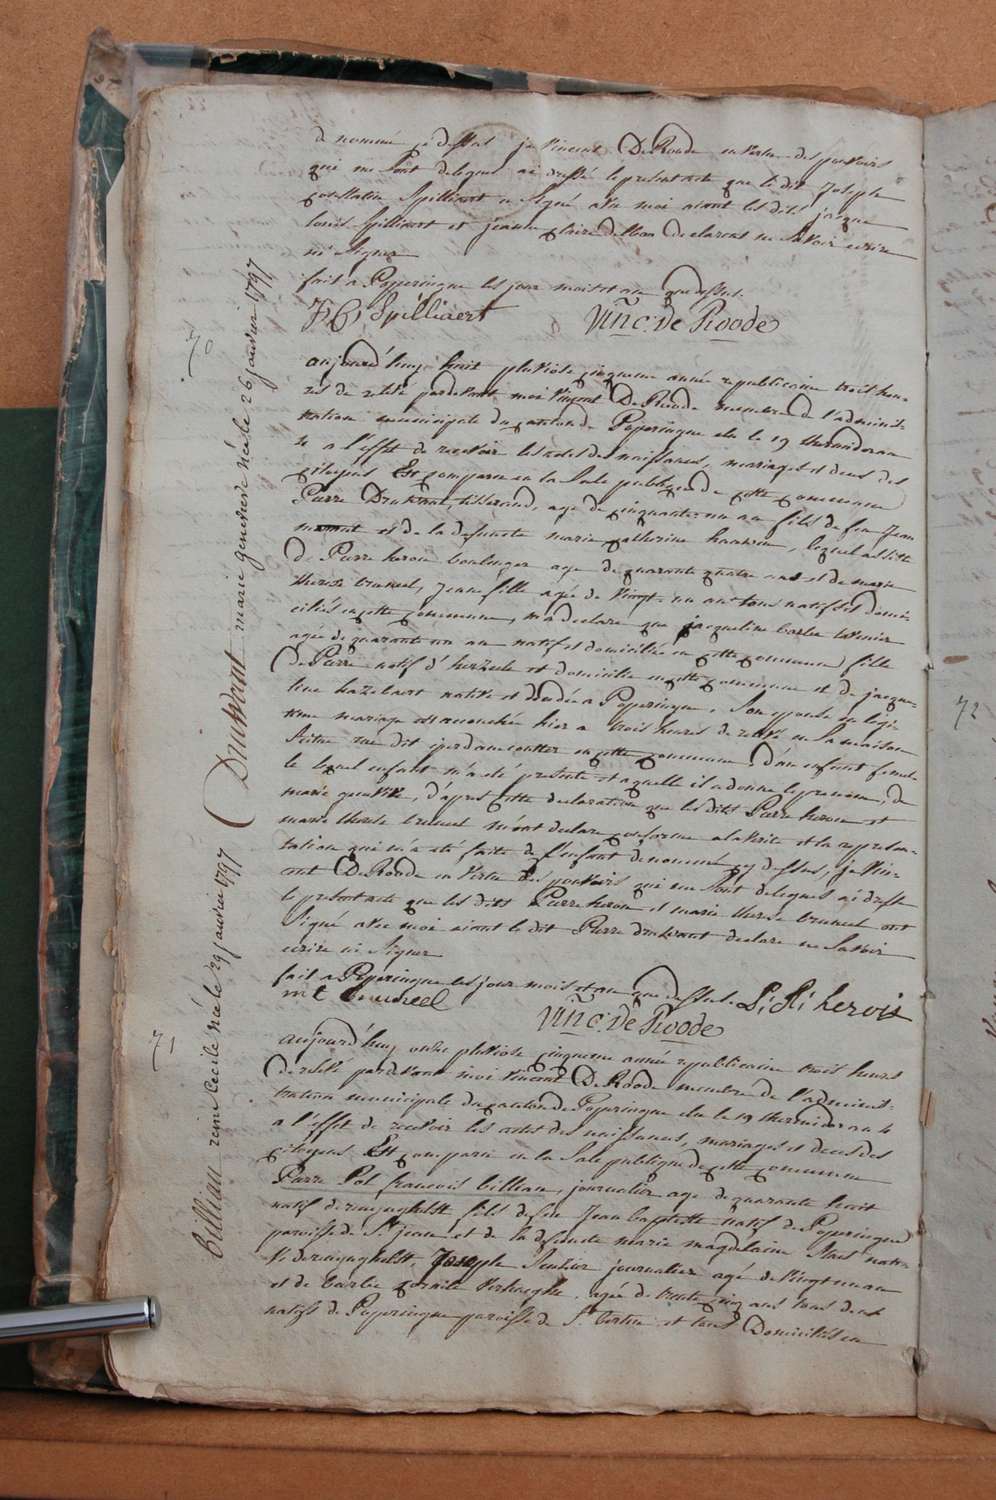 denommé ci dessus je Vincent De Roode en vertu des pouvoirs
qui me sont delegués ai dressé le present acte que le dit Joseph
Constatin Spilliaert a signé avec moi aiant les dits jacque
louis Spilliaert et jeanne claire declarent ne savoir ecrire
ni signer
fait a Poperingue les jour mois et an que dessus.
J C Spilliaert Vinc. De Roode
70
Druwant marie genevieve née le 26 janvier 1797
aujourd'huy huit pluviose cinquieme année republicaine trois heu-
res de relevé pardevant moi Vincent De Roode membre de l'adminis-
tration municipale du canton de Poperingue elu le 19 thermidor an
4 a l'effet de recevoir les actes des naissances, mariages et deces des
citoyens Est comparu en la Sale publique de cette commune
Pierre Druwant, tisserand, age de cinquante un an fils de feu Jean
et de la defuncte marie catherine lequel assisté
de Pierre herois boulanger age de quarante quatre ans et de marie
therese bruneel, jeune fille agée de vingt un ans tous natifs et domi-
ciliés en cette commune, m'a declaré que jacqueline barbe
agée de quarante un an native et domiciliée en cette commune fille
de Pierre natif d'herzeele et domicilié en cette commune et de jacque-
line hazebaert native et a Poperingue, son epouse en legi-
time mariage est accouchée hier a trois heures de relevé en sa maison
scitue rue dit en cette commune, d'un enfant femelle
lequel enfant m'a été presenté et auquelle il a donné le prenom, de
marie genevieve, d'apres cette declaration que les dits Pierre herois et
marie therese bruneel m'ont declaré conforme a la verité et la represen-
tation qui m'a été faite de l'enfant denommé cy dessus, je Vin-
cent De Roode en vertu des pouvoirs qui me sont delegués ai dressé
le present acte que les dits Pierre herois et marie therese bruneel ont
signé avec moi aiant le dit Pierre druwant declaré ne savoir
ecrire ni signer
fait a Poperingue les jour mois et an que dessus. P: h: herois
m t bruneel Vinc. De Roode
71
Billiau reine cecile née le 29 janvier 1797
aujourd'huy onze pluviose cinquieme année republicaine trois heures
de relevé pardevant moi Vincent De Roode membre de l'adminis-
tration municipale du canton de Poperingue elu le 19 thermidor an 4
a l'effet de recevoir les actes des naissances, mariages et deces des
citoyens Est comparu en la Sale publique de cette commune
Pierre Pol francois billiau, journalier age de quarante huit
natif de reninghelst fils de feu Jean baptiste natif de Poperingue
paroisse de St jean et de la defuncte marie magdelaine nati-
ve de reninghelst, Joseph journalier agé de vingt un an
et de barbe cornille verhaeghe, agée de trente cinq ans tous deux
natifs de Poperingue paroisse de St bertin et tous Domiciliés en
72